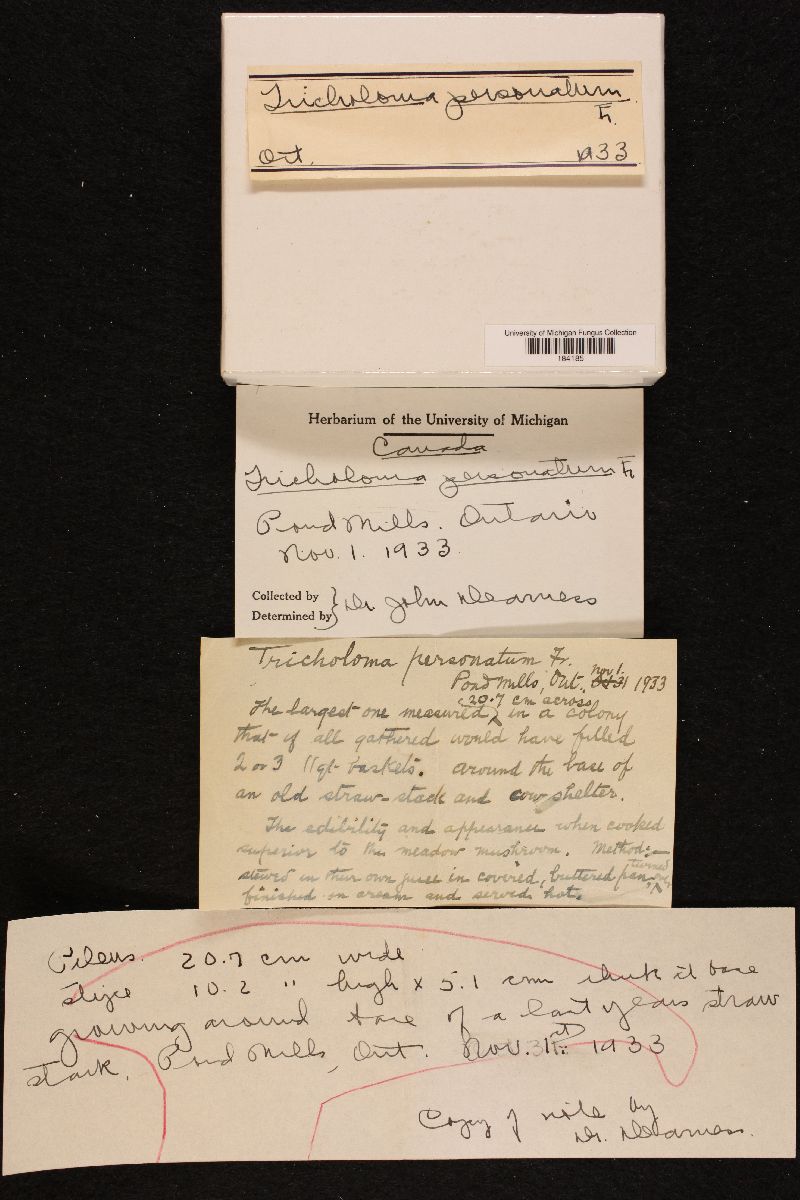 Tricholoma personatum
Fr.
Ont. 1933
University of Michigan Fungus Collection
184185
Herbarium of the University of Michigan
Canada
Tricholoma personatum Fr
Pond Mills. Ontario
Nov. 1. 1933.
Collected by
Determined by } Dr John Dearness
Tricholoma personatum Fr.
Pond Mills, Ont., Nov 1. 1933
The largest one measured (20.7 cm across) in a colony
that if all gathered would have filled
2 or 3 11 qt baskets. around the base of
an old straw-stack and cow shelter.
The edibility and appearance when cooked
superior to the meadow mushroom. Method:—
stewed in their own juice in covered, buttered pan, turned
finished in cream and served hot.
Pileus. 20.7 cm wide
Stipe 10.2 " high x 5.1 cm thick at base
growing around base of a last years straw
stack. Pond Mills, Ont. Nov. 1st 1933
Copy of note by
Dr. Dearness.